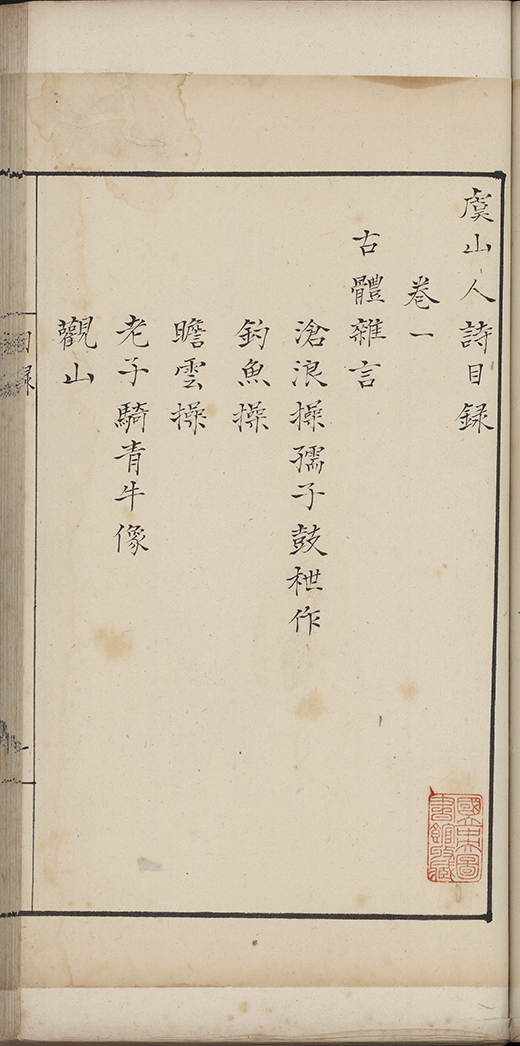 虞山人詩目録
卷一
古體雜言
滄浪操孺子鼓枻作
釣魚操
瞻雲操
老子騎青牛像
觀山
目録
國立中央圖
書館收藏